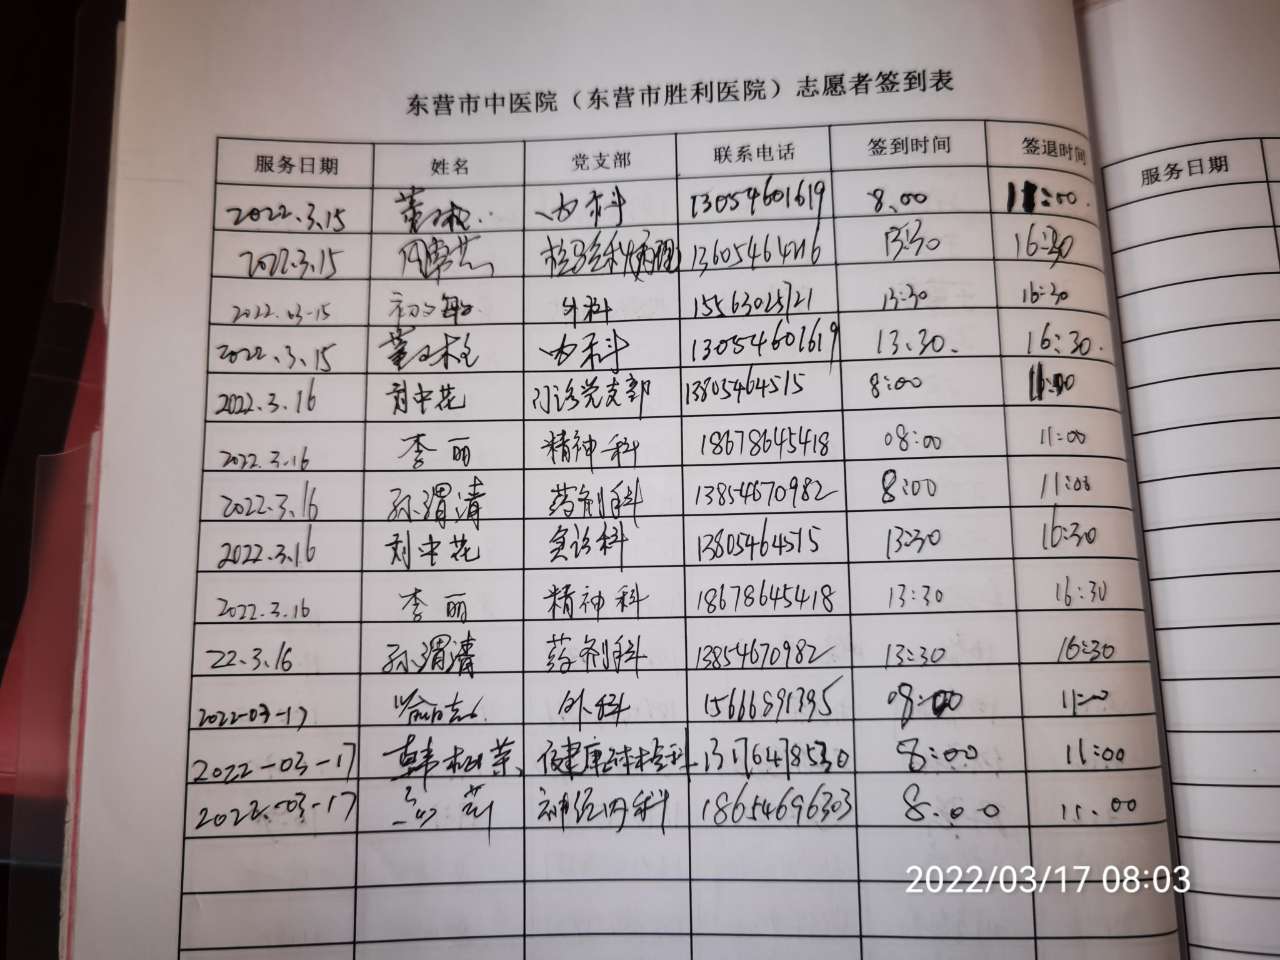 东营市中医院（东营市胜利医院）志愿者签到表
服务日期 姓名 党支部 联系电话 签到时间 签退时间 服务日期
2022.3.15 内科 13054601619 8.00 11:00.
2022.3.15 13:30 16:30
2022.03-15 外科 15563025721 13:30 16:30
2022.3.15 内科 13054601619 13.30. 16:30.
2022.3.16 刘中花 门诊党支部 13805464515 8:00 11:00
2022.3.16 李丽 精神科 18678645418 08:00 11:00
2022.3.16 孙渭清 药剂科 13854670982 8:00 11:00
2022.3.16 刘中花 13805464515 13:30 16:30
2022.3.16 李丽 精神科 18678645418 13:30 16:30
22.3.16 孙渭清 药剂科 13854670982 13:30 16:30
2022-03-17 外科 15666891395 08:00 11:00
2022-03-17 韩松荣 健康体检科 13176478530 8:00 11:00
2022.-03-17 神经内科 18654696303 8.00 11.00
2022/03/17 08:03